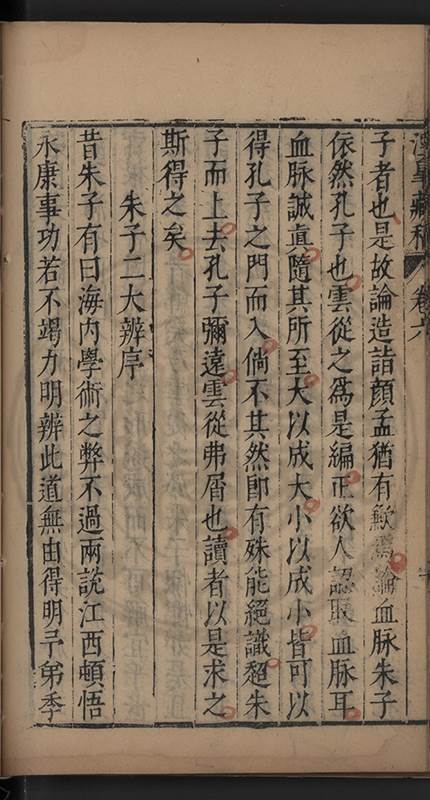 子者也是故論造詣顏孟猶有歉焉論血脉朱子
依然孔子也雲從之爲是編正欲人認取血脉耳
血脉誠眞隨其所至大以成大小以成小皆可以
得孔子之門而入倘不其然卽有殊能絕識超朱
子而上去孔子彌遠雲從弗屑也讀者以是求之
斯得之矣
朱子二大辨序
昔朱子有曰海內學術之弊不過兩說江西頓悟
永康事功若不竭力明辨此道無由得明予弟季
藏稿
卷六